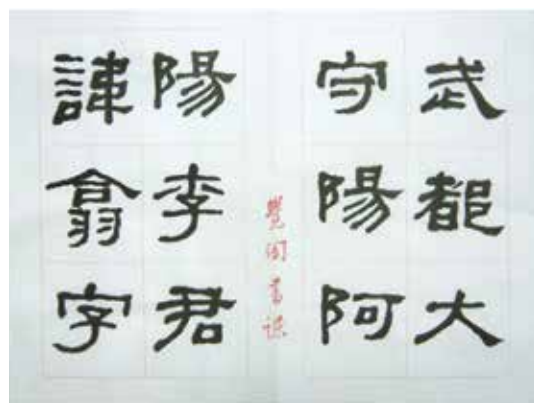 武都大
守陽阿
陽李君
諱翕字